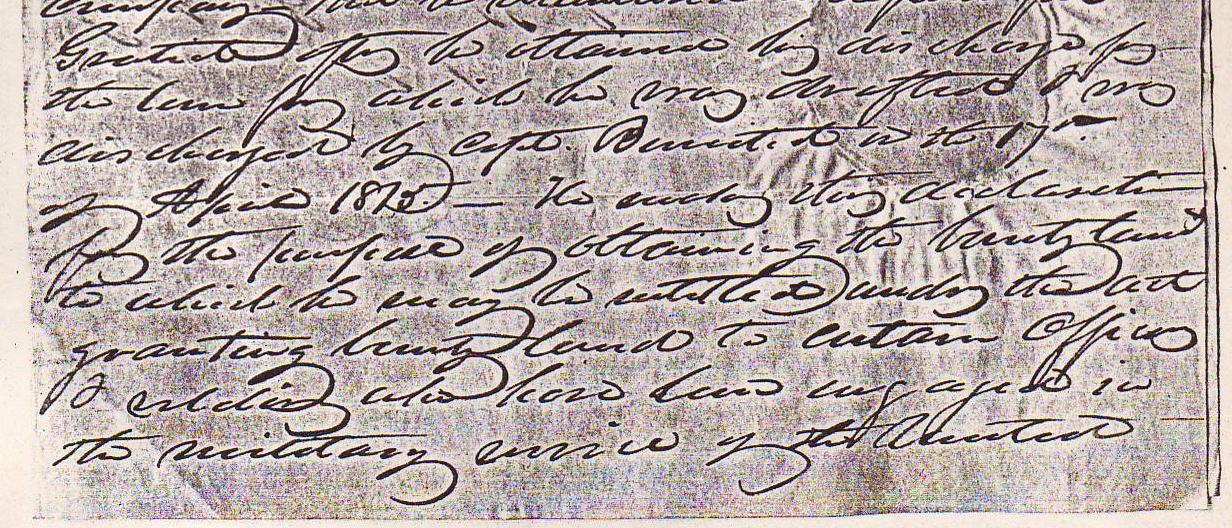 Company
after he obtained his discharge for
the term for which he was drafted & was
discharged by Capt. in the 17th
of April 1815. — He makes this declaration
for the purpose of obtaining the bounty land
to which he may be entitled under the act
granting bounty land to certain Officers
& soldiers who have been engaged in
the military service of the United